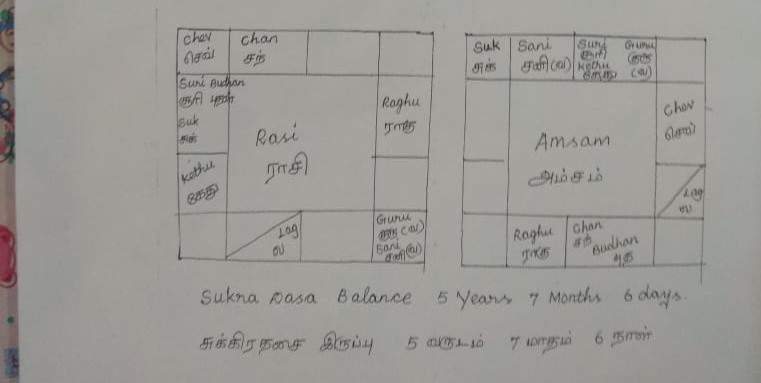 Chev
செவ்
Chan
சந்
Suri Budhan
சூரி புதன்
Suk
சுக்
Raghu
ராகு
Rasi
ராசி
Kethu
கேது
Lag
ல
Guru
குரு (வ)
Sani
சனி (வ)
Suk
சுக்
Sani
சனி (வ)
Suri Guru
சூரி குரு
Kethu (வ)
கேது
Chev
செவ்
Amsam
அம்சம்
Lag
ல
Raghu
ராகு
Chan
சந்
Budhan
புத
Sukra Dasa Balance 5 Years 7 Months 6 days.
சுக்கிரதசை இருப்பு 5 வருடம் 7 மாதம் 6 நாள்